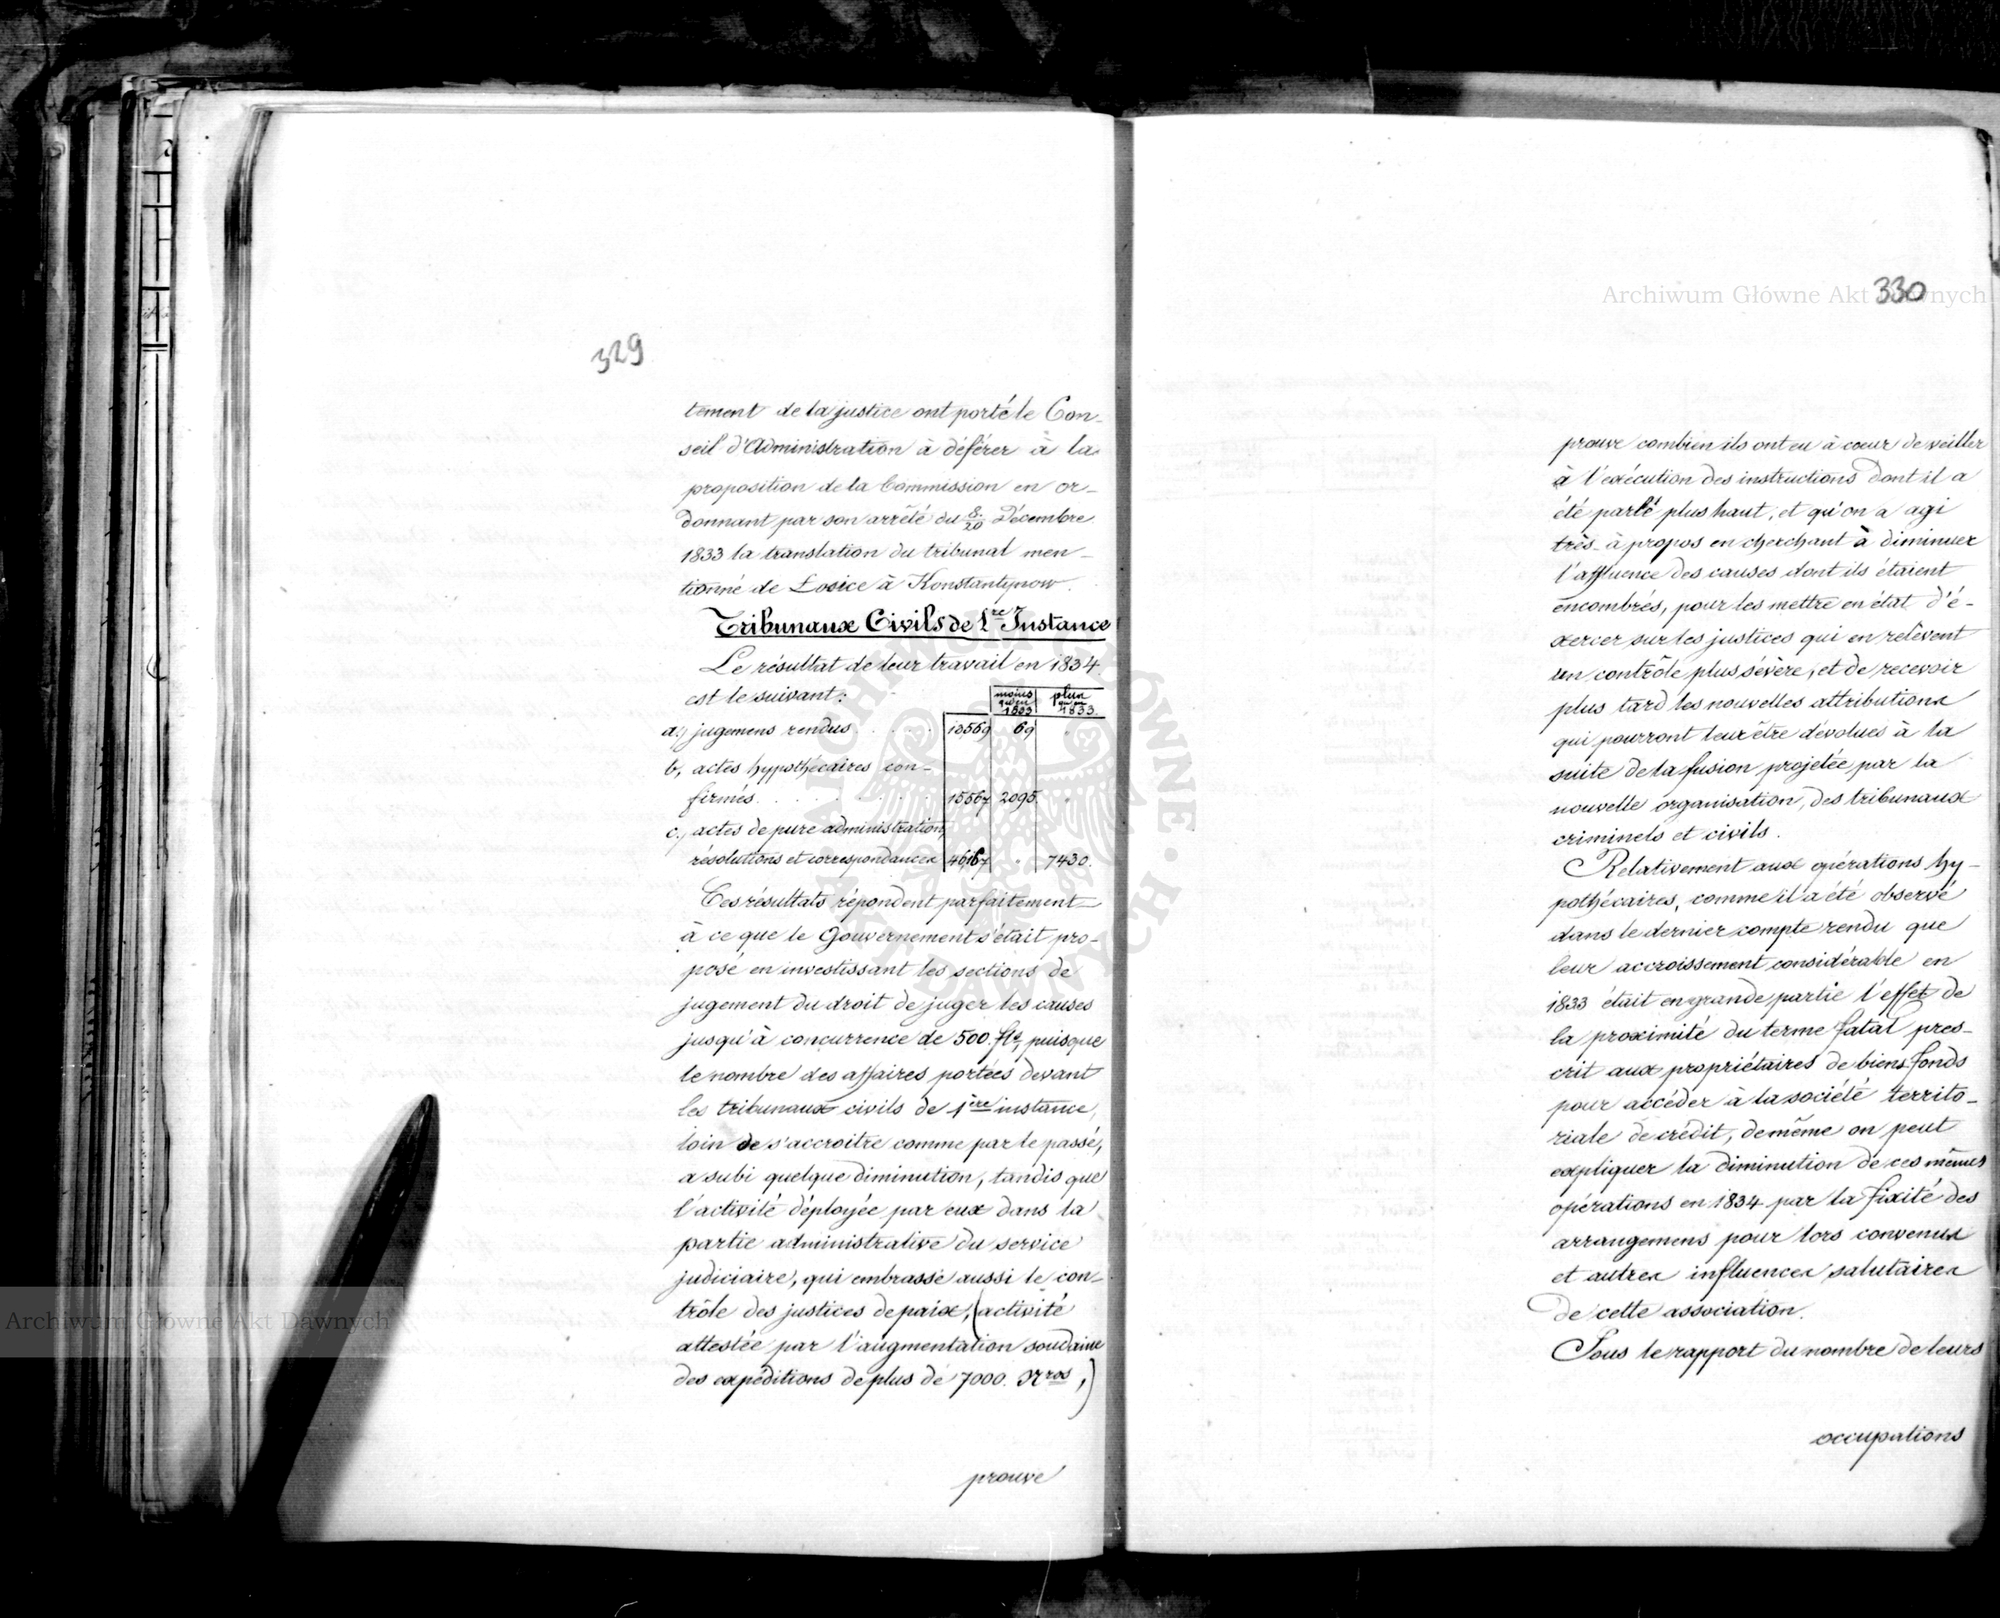 329
tement de la justice ont porté le Con-
seil d'Administration à déférer à la
proposition de la Commission en or-
donnant par son arrêté du 8/20 Décembre
1833 la translation du tribunal men-
tionné de Łosice à Konstantynow.
Tribunaux Civils de 1re Instance
Le résultat de leur travail en 1834
est le suivant:
moins qu'en 1833 plus qu'en 1833.
a.) jugemens rendus . . . . . 13569 69 "
b, actes hypothécaires con-
firmés . . . . . . . . 15567 2095. "
c.) actes de pure administration,
résolutions et correspondances 46167 " 7430.
Ces résultats répondent parfaitement
à ce que le Gouvernement s'était pro-
posé en investissant les sections de
jugement du droit de juger les causes
jusqu'à concurrence de 500. fls, puisque
le nombre des affaires portées devant
les tribunaux civils de 1ère instance,
loin de s'accroitre comme par le passé,
a subi quelque diminution, tandis que
l'activité déployée par eux dans la
partie administrative du service
judiciaire, qui embrasse aussi le con-
trôle des justices de paix, (activité
attestée par l'augmentation soudaine
des expéditions de plus de 7000. Nros,)
prouve
330
prouve combien ils ont eu à coeur de veiller
à l'exécution des instructions dont il a
été parlé plus haut, et qu'on a agi
très à propos en cherchant à diminuer
l'affluence des causes dont ils étaient
encombrés, pour les mettre en état d'é-
xercer sur les justices qui en relèvent
un contrôle plus sévère, et de recevoir
plus tard les nouvelles attributions
qui pourront leur être dévolues à la
suite de la fusion projetée par la
nouvelle organisation, des tribunaux
criminels et civils.
Relativement aux opérations hy-
pothécaires, comme il a été observé
dans le dernier compte rendu que
leur accroissement considérable en
1833 était en grande partie l'effet de
la proximité du terme fatal pres-
crit aux propriétaires de biens fonds
pour accéder à la société territo-
riale de crédit, de même on peut
expliquer la diminution de ces mêmes
opérations en 1834 par la fixité des
arrangemens pour lors convenus
et autres influences salutaires
de cette association.
Sous le rapport du nombre de leurs
occupations
Archiwum Główne Akt Dawnych
Archiwum Główne Akt Dawnych
ARCHIWUM GŁÓWNE AKT DAWNYCH